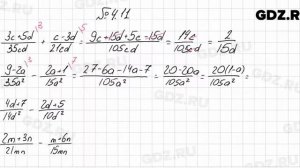 №411
GDZ.RU
3c+5d/35cd + c-3d/21cd = 9c+15d+5c-15d/105cd = 14c/105cd = 2/15d
9-2a/35a² - 2a+1/15a² = 27-6a-14a-7/105a² = 20-20a/105a² = 20(1-a)/105a² =
4d+7/14d² - 2d+5/10d²
2m+3n/21mn - m+6n/15mn
GDZ.RU